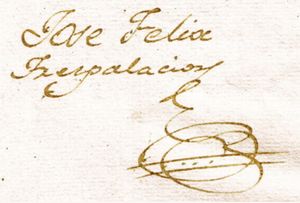 Jose Felix
Trespalacios